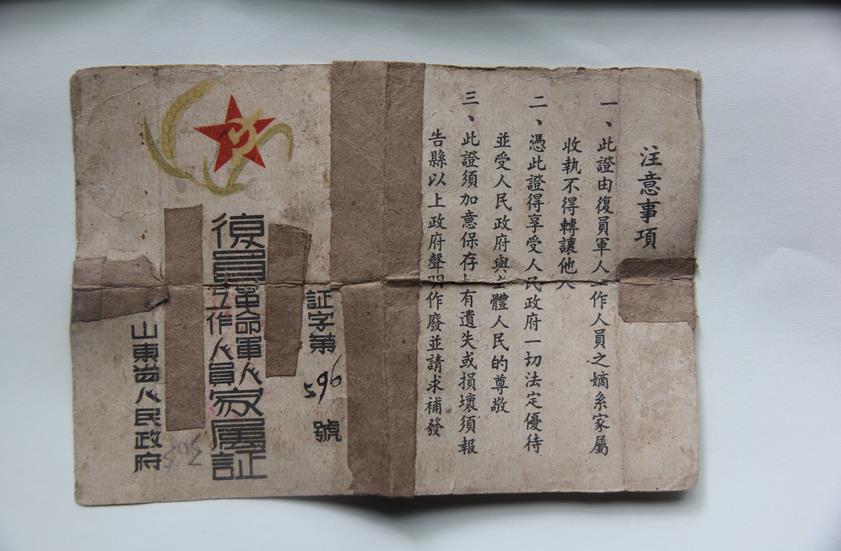 注意事項
一、此證由復員軍人工作人員之嫡系家屬
收執不得轉讓他人
二、憑此證得享受人民政府一切法定優待
並受人民政府與全體人民的尊敬
三、此證須加意保存如有遺失或損壞須報
告縣以上政府聲明作廢並請求補發
証字第596號
復員革命軍人工作人員家属証
山東省人民政府